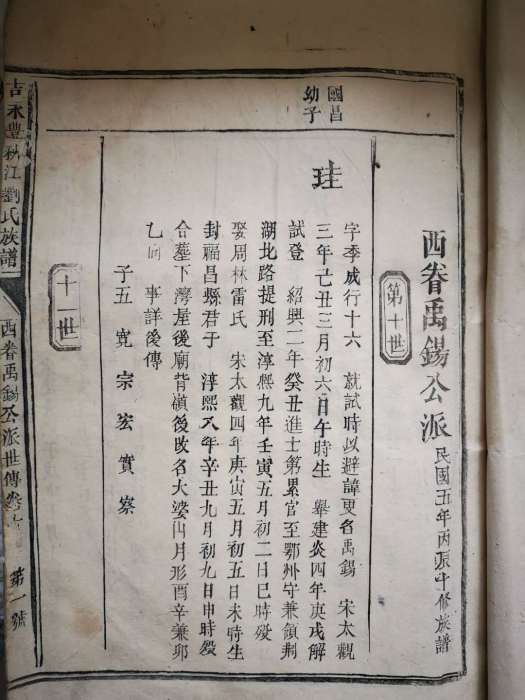 西眷禹錫公派 民國五年丙辰十修族譜
第十世
國昌
幼子
珪
字季成行十六 就試時以避諱更名禹錫 宋太觀
三年己丑三月初六日午時生 舉建炎四年庚戌解
試登 紹興二年癸丑進士第累官至鄂州守兼領荆
湖北路提刑至淳熙九年壬寅五月初二日巳時殁
娶周林雷氏 宋太觀四年庚寅五月初五日未時生
封福昌縣君子 淳熙八年辛丑九月初九日申時殁
合墓下灣屋後廟背嶺後改名大婆山月形酉辛兼卯
乙向 事詳後傳
子五 寬 宗 宏 實 察
十一世
吉永豐秋江劉氏族譜
西眷禹錫公派世傳卷
第一號